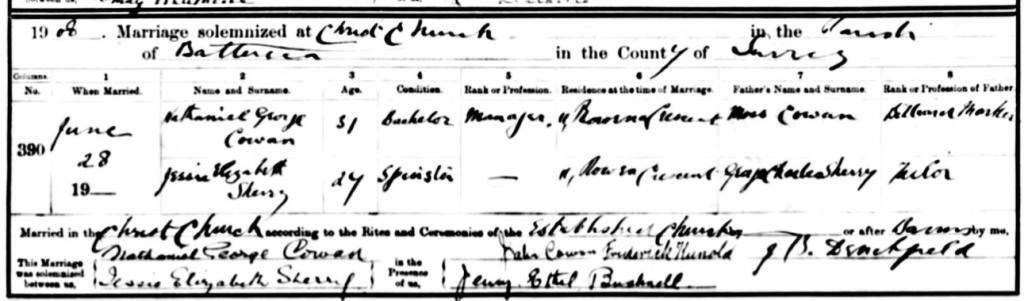 1908. Marriage solemnized at Christ Church in the Parish
of Battersea in the County of Surrey
Columns. 1 2 3 4 5 6 7 8
No. When Married. Name and Surname. Age. Condition. Rank or Profession. Residence at the time of Marriage. Father's Name and Surname. Rank or Profession of Father
390 June 28 19— Nathaniel George Cowan 31 Bachelor Manager Crescent Moss Cowan
Jessie Elizabeth Sherry 27 Spinster — Crescent Charles Sherry Tailor
Married in the Christ Church according to the Rites and Ceremonies of the Established Church or after Banns by me,
This Marriage was solemnized between us, Nathaniel George Cowan in the Presence of us, Cowan Frederick J. B.
Jessie Elizabeth Sherry Jenny Ethel Bushnell